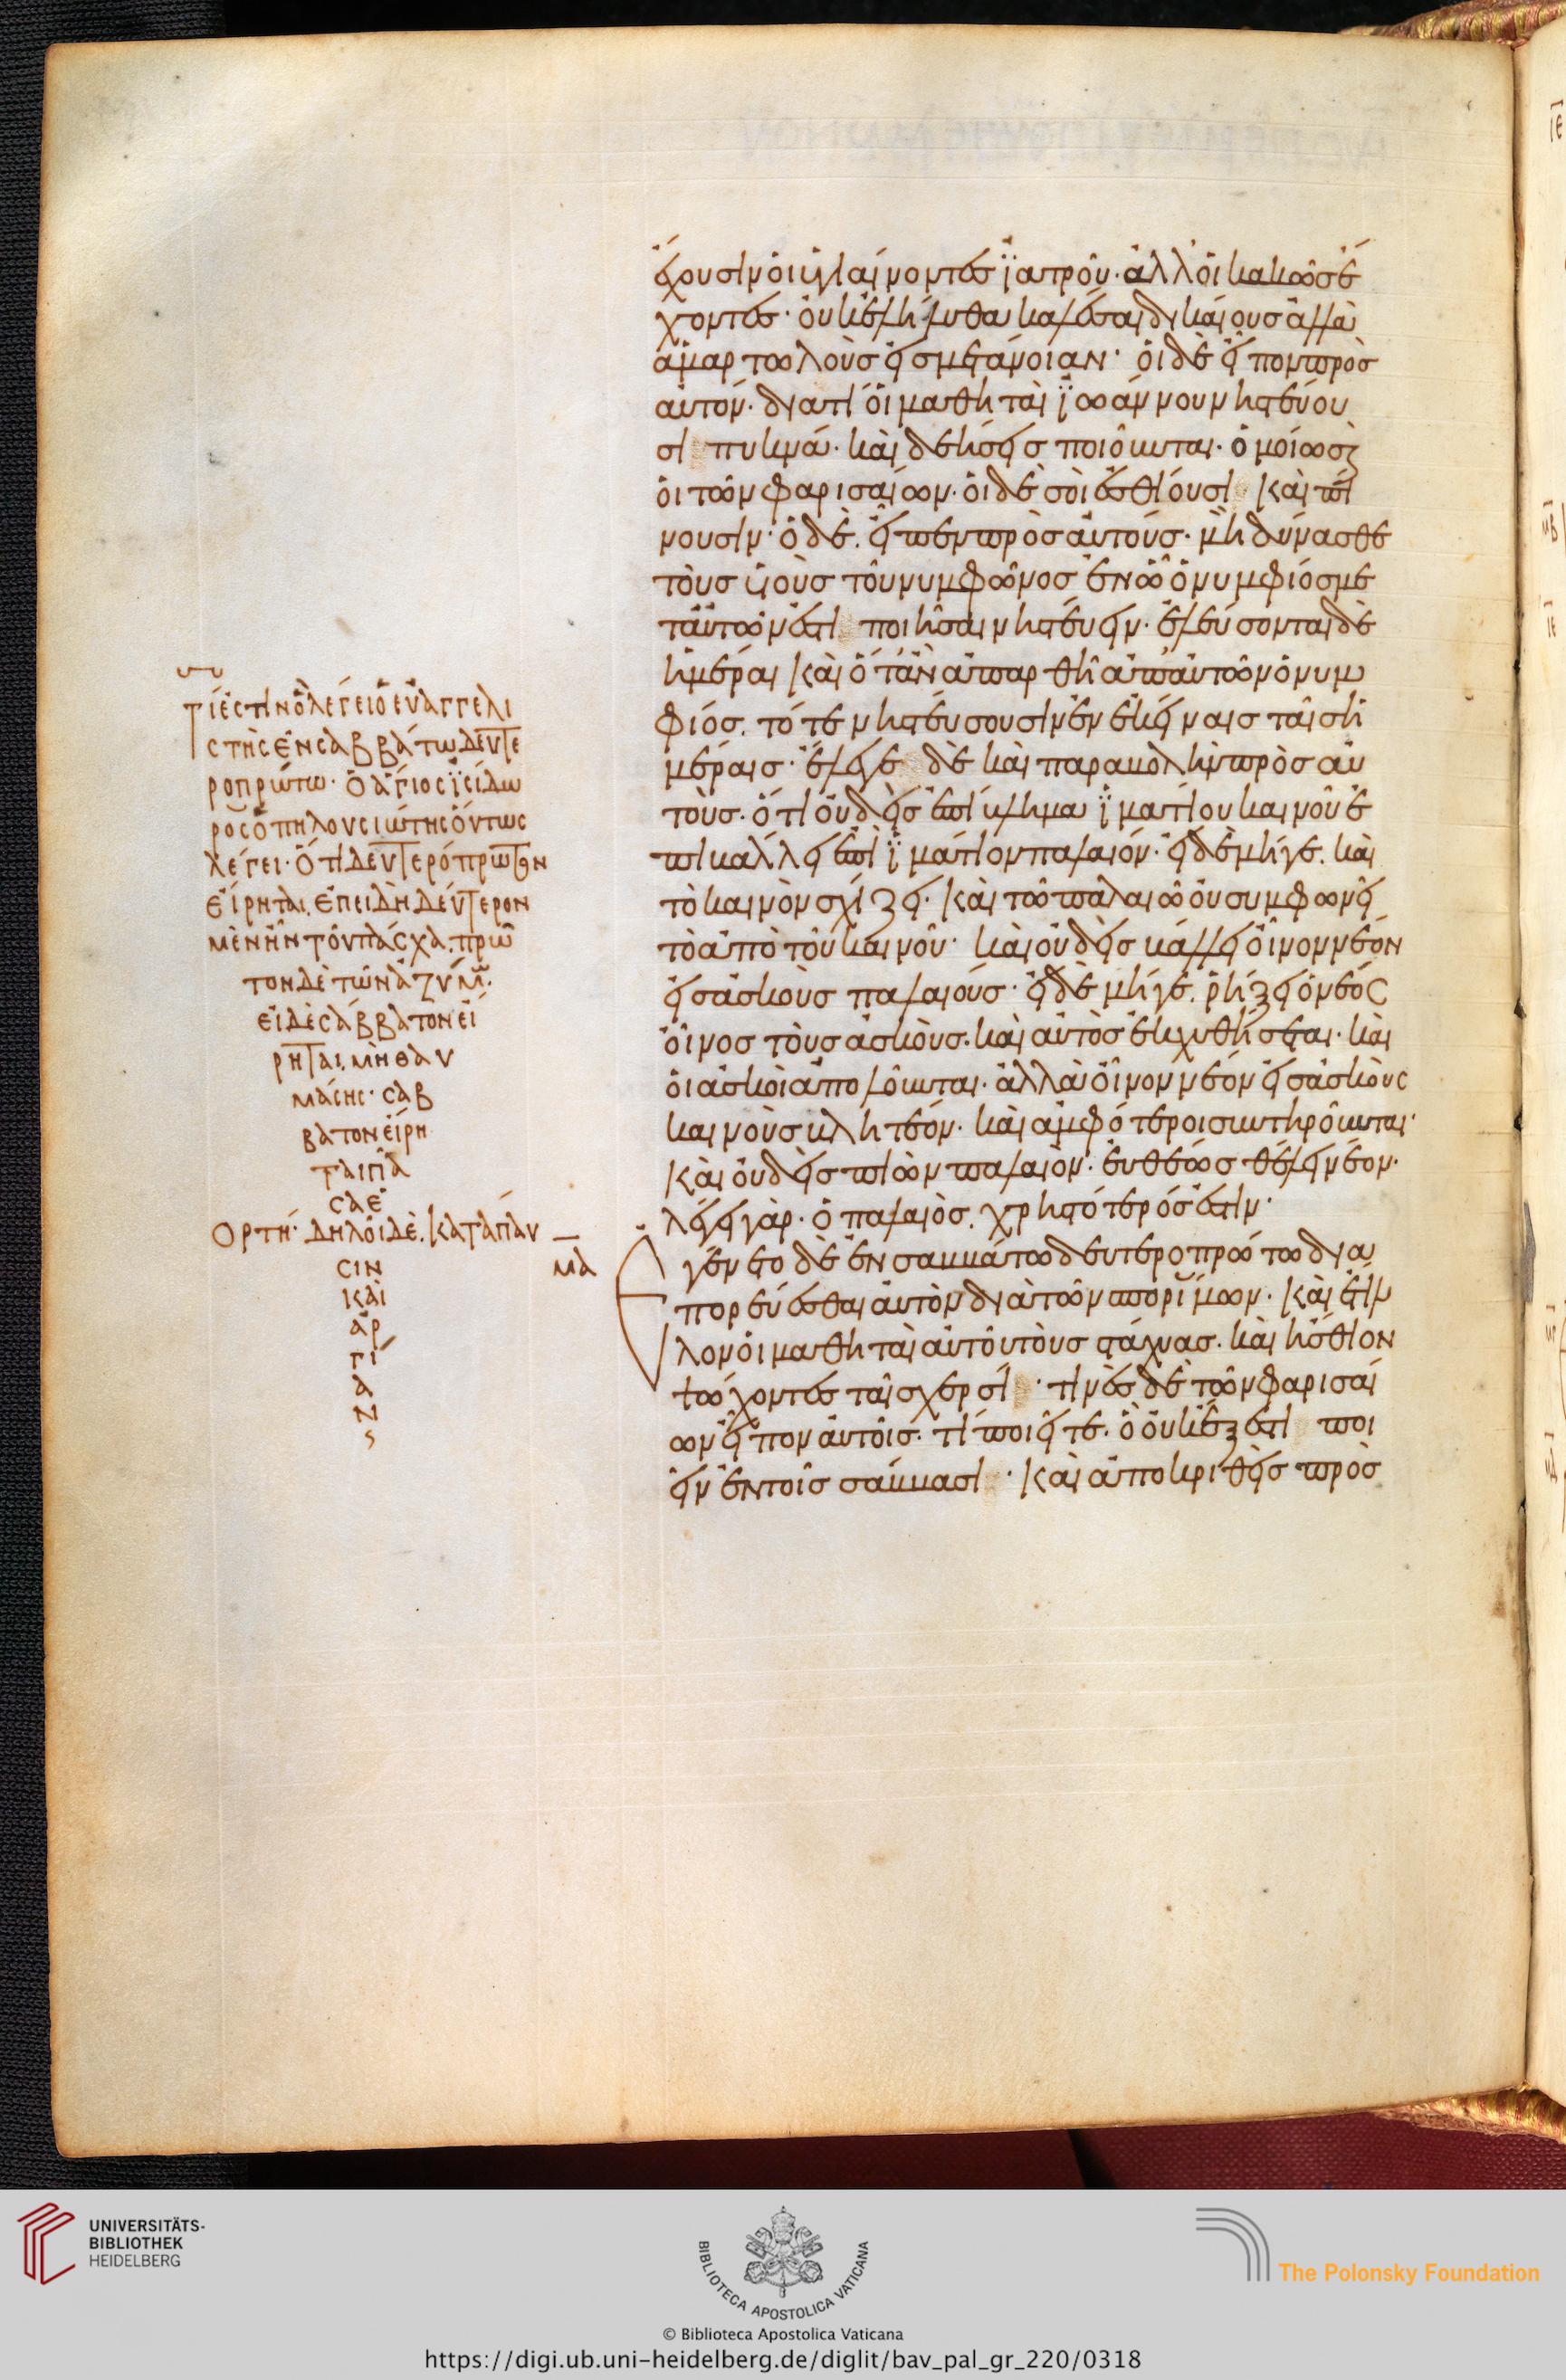 έχουσιν οἱ ὑγιαίνοντες ϊατροῦ· ἀλλ' οἱ κακῶς ἔ
χοντες· οὐκ ἐλήλυθα καλέσαι δικαίους ἀλλὰ
ἁμαρτωλοὺς εἰς μετάνοιαν· οἱ δὲ εἶπον πρὸς
αὐτόν· διατί οἱ μαθηταὶ ϊωάννου νηστεύου
σι πυκνά· καὶ δεήσεις ποιοῦνται· ὁμοίως καὶ
οἱ τῶν φαρισαίων· οἱ δὲ σοὶ ἐσθίουσι καὶ πί
νουσιν· ὁ δὲ. εἶπεν πρὸς αὐτούς· μὴ δύνασθε
τοὺς υἱοὺς τοῦ νυμφῶνος ἐν ᾧ ὁ νυμφίος με
τ' αὐτῶν ἐστι ποιῆσαι νηστεύειν· ἐλεύσονται δὲ
ἡμέραι καὶ ὅταν ἀπαρθῆ ἀπ' αὐτῶν ὁ νυμ
φίος. τότε νηστεύσουσιν ἐν ἐκείναις ταῖς ἡ
μέραις· ἔλεγε δὲ καὶ παραβολὴν πρὸς αὐ
τοὺς· ὅτι οὐδεὶς ἐπίβλημα ϊματίου καινοῦ ἐ
πιβάλλει ἐπὶ ϊμάτιον παλαιόν· εἰ δὲ μήγε. καὶ
τὸ καινὸν σχίζει· καὶ τῶ παλαιῶ οὐ συμφωνεῖ
τὸ ἀπὸ τοῦ καινοῦ· καὶ οὐδεὶς βάλλει οἶνον νέον
εἰς ἀσκοὺς παλαιούς· εἰ δὲ μήγε. ῥήζει ὁ νέος
οἶνος τοὺς ἀσκοὺς. καὶ αὐτὸς ἐκχυθήσεται· καὶ
οἱ ἀσκοὶ ἀπολοῦνται· ἀλλὰ οἶνον νέον εἰς ἀσκοὺς
καινοὺς βλητέον· καὶ ἀμφότεροι συντηροῦνται·
καὶ οὐδεὶς πιὼν παλαιὸν· εὐθέως θέλει νέον·
λέγει γὰρ· ὁ παλαιὸς. χρηστότερός ἐστιν·
Ἐγένετο δὲ ἐν σαββάτω δευτεροπρώτω δια
πορεύεσθαι αὐτὸν διὰ τῶν σπορίμων· καὶ ἔτιλ
λον οἱ μαθηταὶ αὐτοῦ τοὺς στάχυας. καὶ ἤσθιον
ψώχοντες ταῖς χερσί· τινὲς δὲ τῶν φαρισαί
ων εἶπον αὐτοῖς· τί ποιεῖτε· ὃ οὐκ ἔξεστι ποι
εῖν ἐν τοῖς σάββασι· καὶ ἀποκριθεὶς πρὸς
Τί ἐστιν ὃ λέγει ὁ εὐαγγελι
στὴς ἐν σαββάτω δευτε
ροπρώτω· ὁ ἅγιος ϊσίδω
ρος ὁ πηλουσιώτης οὕτως
λέγει· ὅτι δευτερόπρωτον
εἴρηται. ἐπειδὴ δεύτερον
μὲν ἦν τοῦ πάσχα. πρῶ
τον δὲ τῶν ἀζύμ·
εἰ δὲ σάββατον εἴ
ρηται. μὴ θαυ
μάσης· σάβ
βατον εἴρη
ται πᾶ
σα ἑ
ορτή· δηλοῖ δὲ. κατάπαυ
σιν
καὶ
ἀρ
γί
α
ν
μα
UNIVERSITÄTS-
BIBLIOTHEK
HEIDELBERG
BIBLIOTECA APOSTOLICA VATICANA
The Polonsky Foundation
© Biblioteca Apostolica Vaticana
https://digi.ub.uni-heidelberg.de/diglit/bav_pal_gr_220/0318